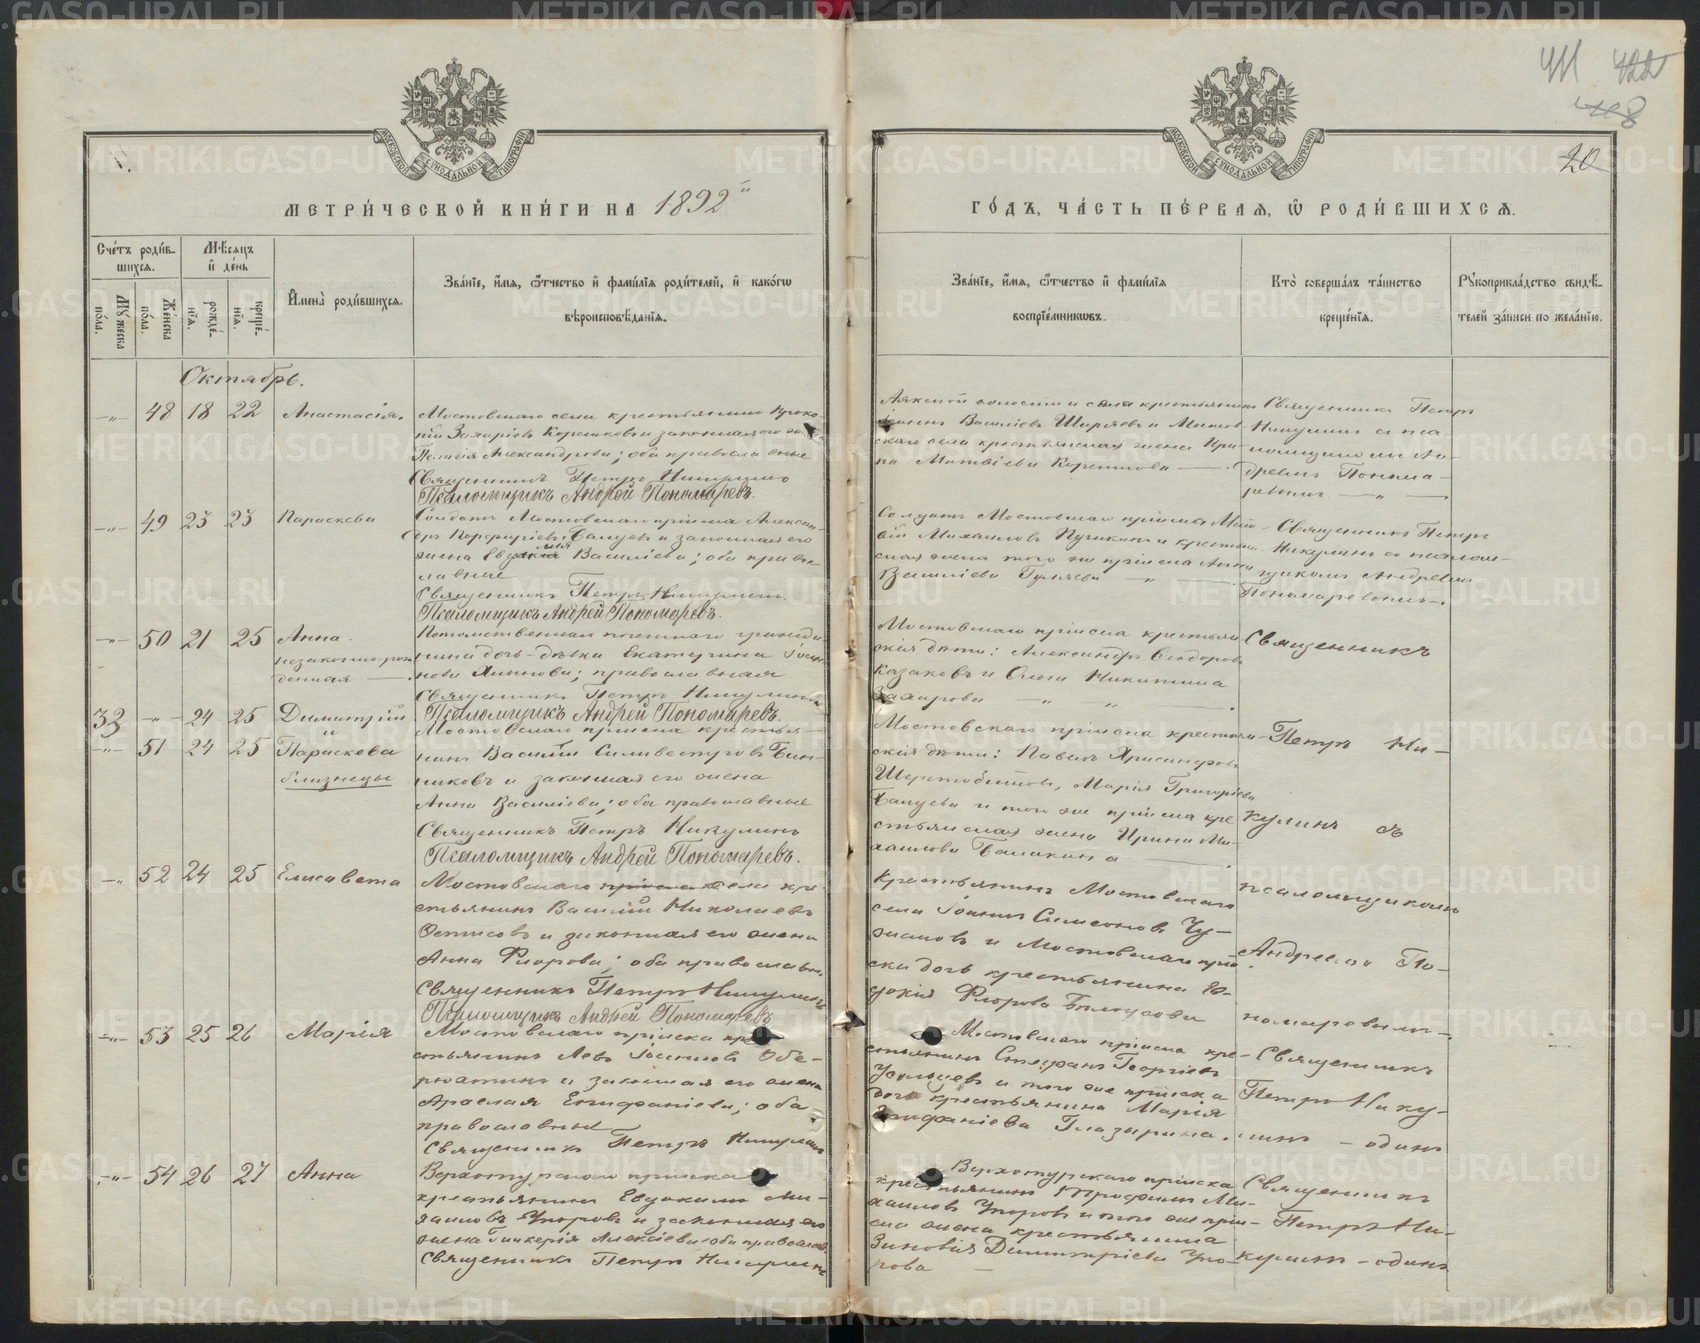 411 422
418
20
МОСКОВСКОЙ СѴНОДАЛЬНОЙ ТИПОГРАФІИ
МОСКОВСКОЙ СѴНОДАЛЬНОЙ ТИПОГРАФІИ
МЕТРИ́ЧЕСКОЙ КНИ́ГИ НА 1892 й
Сче́тъ роди́в-
шихся.
Мѣ́сяцъ
и҆ де́нь
Мꙋ́жеска по́ла.
Же́нска по́ла.
рожде́-нїя.
креще́-нїя.
И҆мена̀ роди́вшихся.
Зва́нїе, и҆́мя, ѻ҆́тчество и҆ фами́лїя роди́телей, и҆ како́гѡ
вѣроисповѣ́данїя.
Октябрь.
-„- 48 18 22 Анастасія. Мостовскаго села крестьянинъ Проко-
пій Захаріевъ Корешковъ и законная его ж.
Пелагія Александрова; оба православные
Священникъ Петръ Никулинъ
Псаломщикъ Андрей Пономаревъ.
-„- 49 23 23 Параскева Солдатъ Мостовскаго пріиска Алексан-
дръ Порфиріевъ и законная его
жена Василіева; оба право-
славные
Священникъ Петръ Никулинъ.
Псаломщикъ Андрей Пономаревъ.
-„- 50 21 25 Анна. Потомственнаго почетнаго гражда-
незаконнорож- нина дочь-дѣвка Екатерина
денная православная
Священникъ Петръ Никулинъ
33 -„- 24 25 Димитрій Псаломщикъ Андрей Пономаревъ.
и Мостовскаго пріиска крестья-
-„- 51 24 25 Параскева нинъ Василій Силивестровъ
близнецы никовъ и законная его жена
Анна Василіева; оба православные
Священникъ Петръ Никулинъ
Псаломщикъ Андрей Пономаревъ.
-„- 52 24 25 Елисавета Мостовскаго села кре-
стьянинъ Василій Николаевъ
и законная его жена
Анна Флорова; оба православн.
Священникъ Петръ Никулинъ
Псаломщикъ Андрей Пономаревъ
-„- 53 25 26 Марія Мостовскаго пріиска кре-
стьянинъ Левъ Іоанновъ Обе-
рюхтинъ и законная его жена
Епифаніева; оба
православные
Священникъ Петръ Никулинъ
-„- 54 26 27 Анна Верхотурскаго пріиска
крестьянинъ Евдокимъ Ми-
хаиловъ Упоровъ и законная его
жена Гликерія Алексіева оба православ.
Священникъ Петръ Никулинъ
ГО́ДЪ, ЧА́СТЬ ПЕ́РВАЯ, Ѡ҆ РОДИ́ВШИХСЯ.
Зва́нїе, и҆́мя, ѻ҆́тчество и҆ фами́лїя
воспрїе́мникѡвъ.
Кто̀ соверша́лъ та́инство
креще́нїя.
Рꙋкоприкла́дство свидѣ́-
телей за́писи по жела́нїю.
Аятской волости и села крестьянинъ
Василіевъ Ширяевъ и Мостов-
скаго села крестьянская жена Ири-
на Матвіева Корешкова
Священникъ Петръ
Никулинъ съ пса-
ломщикомъ Ан-
дреемъ Понома-
ревымъ
Солдатъ Мостовскаго пріиска
Михаиловъ и крестьян-
ская жена того же пріиска Анна
Василіева
Священникъ Петръ
Никулинъ съ псалом-
щикомъ Андреемъ
Пономаревымъ.
Мостовскаго пріиска крестьян-
скія дѣти: Александръ Ѳеодоровъ
Казаковъ и Ольга Никитина
Захарова
Священникъ
Мостовскаго пріиска крестьян-
скія дѣти: Павелъ
Марія Григоріева
и того же пріиска кре-
стьянская жена Ирина Ми-
хаилова
Петръ Ни-
кулинъ съ
Крестьянинъ Мостовскаго
села Іоаннъ Симеоновъ Чу-
и Мостовскаго прі-
ска дочь крестьянина Ев-
докія Флорова Белоусова
псаломщикомъ
Андреемъ По-
номаревымъ.
Мостовскаго пріиска кре-
стьянинъ Стефанъ Георгіевъ
Усольцевъ и того же пріиска
дочь крестьянина Марія
Епифаніева Глазырина.
Священникъ
Петръ Нику-
линъ - одинъ
Верхотурскаго пріиска
крестьянинъ Трофимъ Ми-
хаиловъ Упоровъ и того же прі-
ска жена крестьянина
Зиновія Димитріева Упо-
рова
Священникъ
Петръ Ни-
кулинъ - одинъ
METRIKI.GASO-URAL.RU